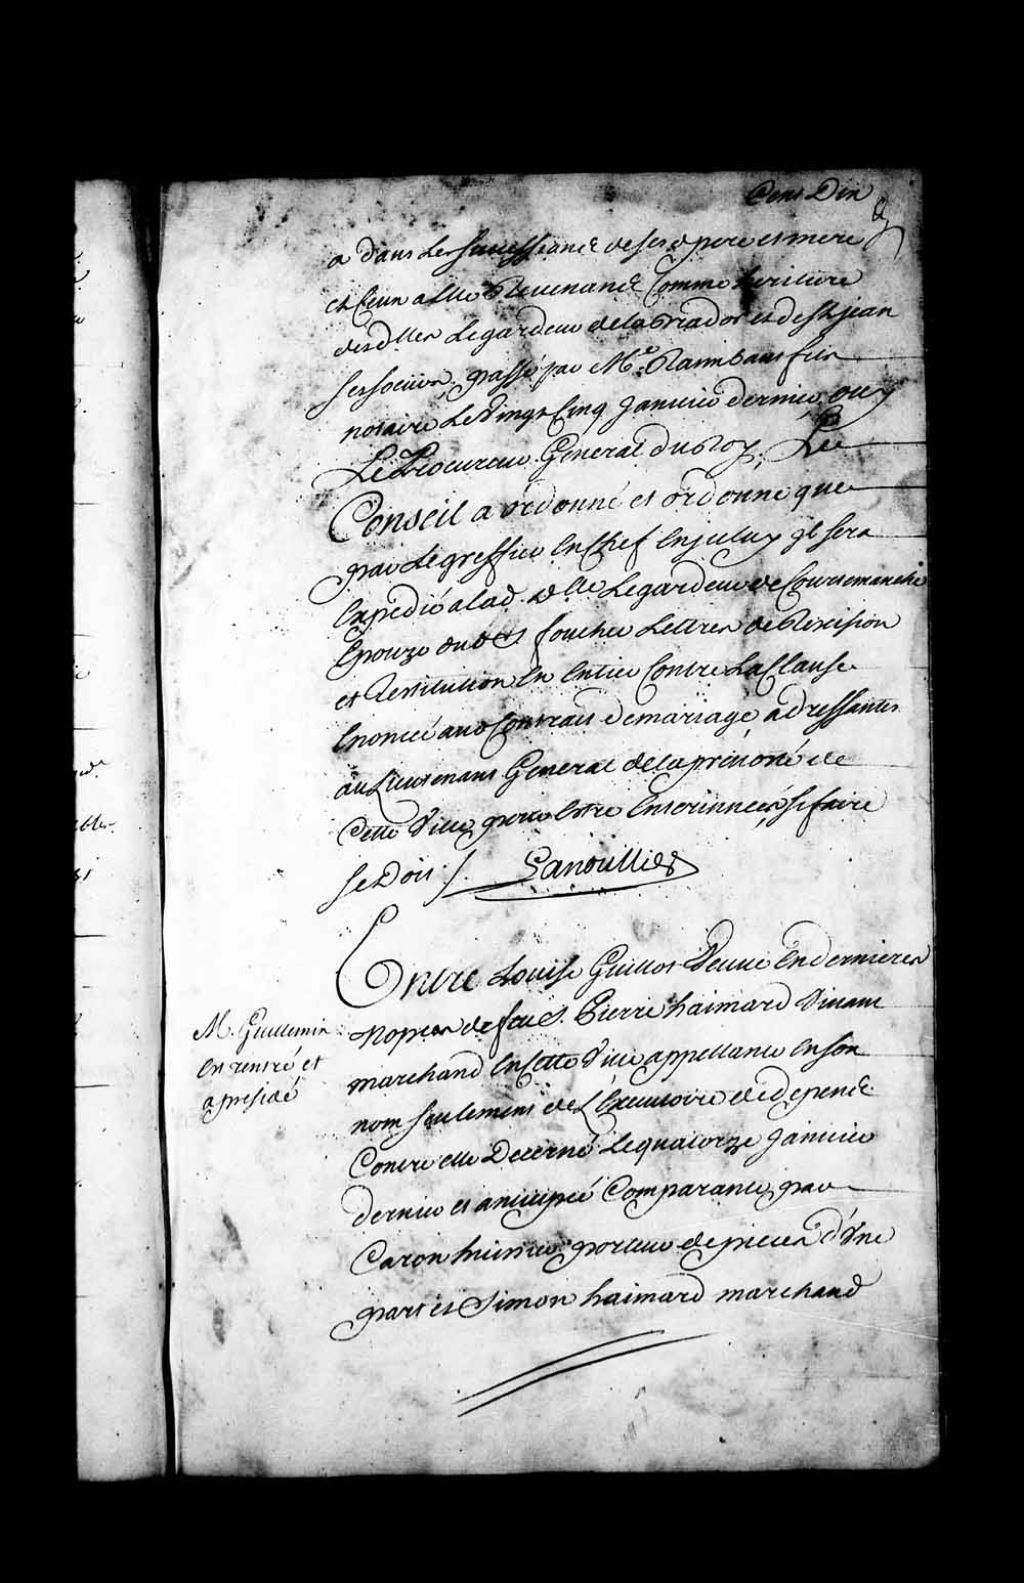 Cent Dix
a dans les successions de ses d. pere et mere
et Ceux a Elle Revenans Comme heritiere
des dlles Legardeur de la Briador et de St jean
ses soeurs, passé par Me. Rambau fils
notaire Le Vingt Cinq Janvier dernier, ouy
Le Procureur General du Roy, Le
Conseil a ordonné et ordonne que
par Le greffier En Chef En jceluy jl sera
Expedié a lad. dlle Legardeur de Courtemanche
Epouze dud. S. foucher Lettres de Rescision
et Restitution En Entier Contre La Clause
Enoncée aud Contrat de mariage, adressantes
au Lieutenant General de la prevosté de
Cette Ville pour Estre Enterinnées, si faire
se Doit /. Lanoullier
Entre Louise Guillot Veuve En dernieres
M. Guillemin
En rentré et
a presidé
nopces de feu S. Pierre haimard Vivant
marchand En Cette Ville appellante En son
nom seulement de L'Executoire de depens
Contre elle Decerné Le quatorze Janvier
dernier et anticipée Comparante par
Caron huissier porteur de pieces d'Une
part et Simon haimard marchand